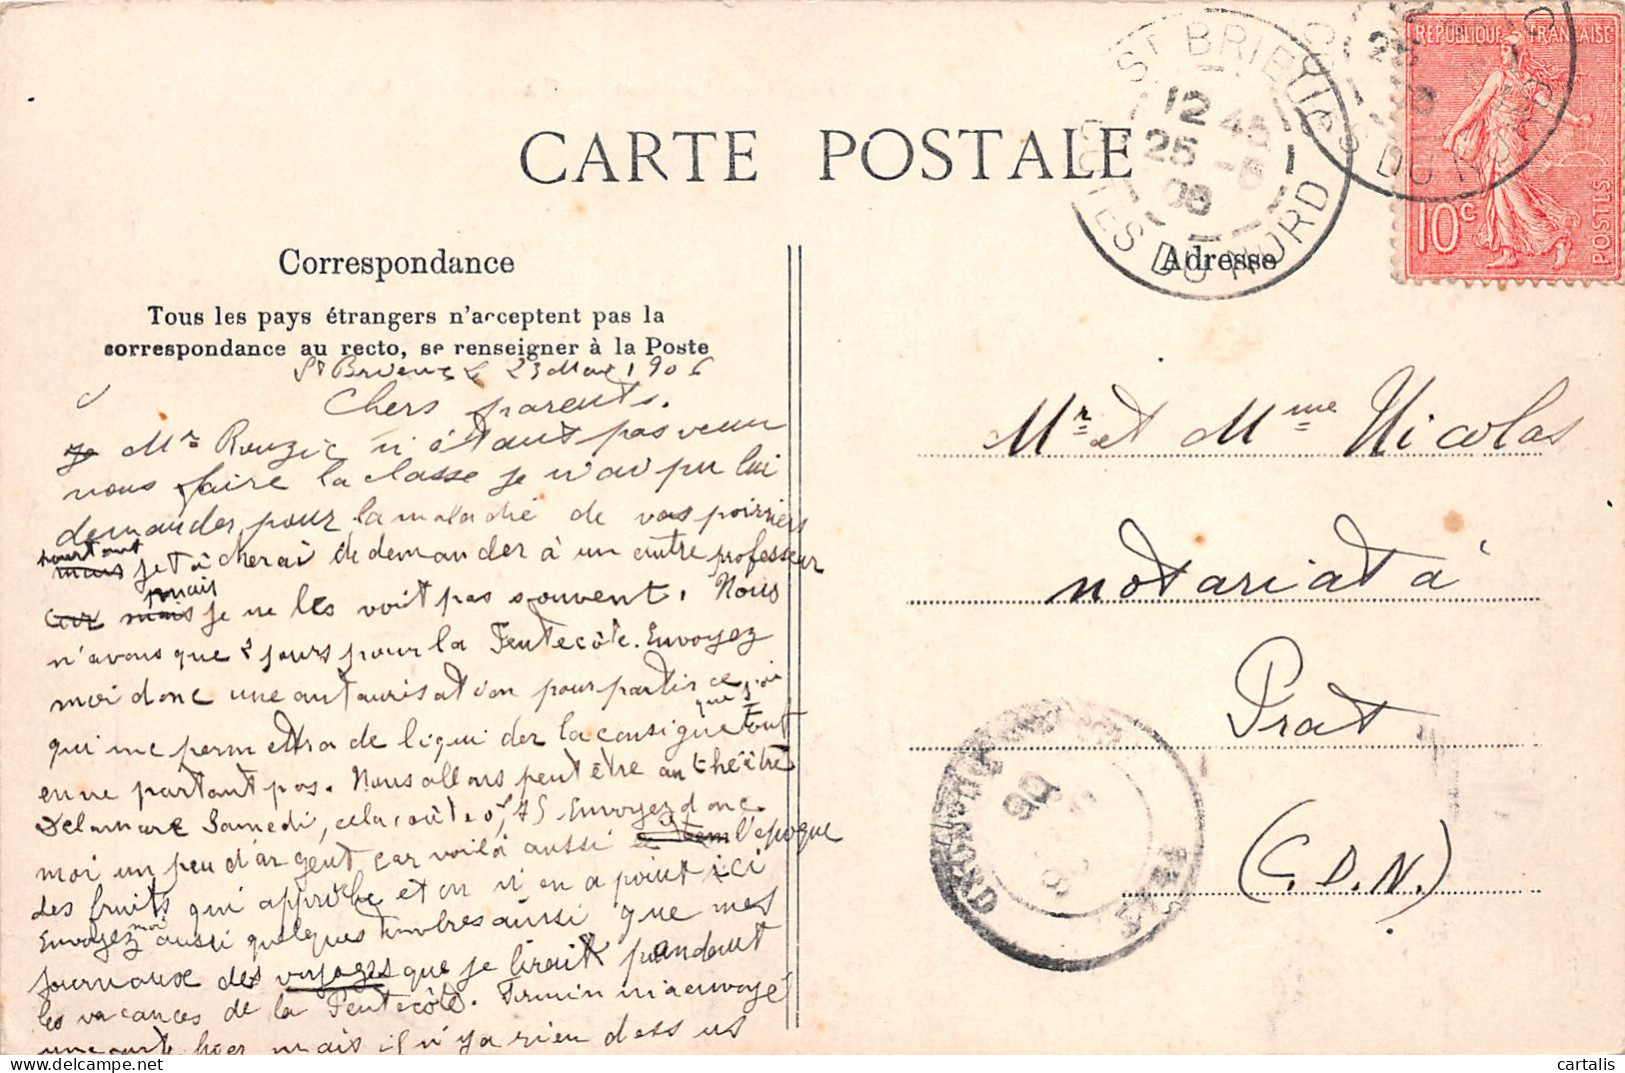 CARTE POSTALE
Correspondance
Tous les pays étrangers n'acceptent pas la
correspondance au recto, se renseigner à la Poste
Adresse
ST BRIEUC
12 45
25 -5
06
COTES DU NORD
REPUBLIQUE FRANÇAISE
10c
POSTES
St Brieuc le 23 Mai 1906
Chers parents.
Mr Rouzic n'étant pas venu
nous faire la classe je n'ai pu lui
demander pour la maladie de vos poiriers
pourtant
je tâcherai de demander à un autre professeur
mais
je ne les voit pas souvent. Nous
n'avons que 2 jours pour la Pentecôte. Envoyez
moi donc une autaurisation pour partir ce
que j'ai
qui me permettra de liquider la consigne tout
en ne partant pas. Nous allons peut être au théâtre
Delamare Samedi, cela coûte 0f,75. Envoyez donc
moi un peu d'argent car voilà aussi l'époque
des fruits qui approche et on n'en a point ici
Envoyez moi aussi quelques timbres aussi que mes
journaux des voyages que je lirait pendant
les vacances de la Pentecôte. Firmin m'a envoyé
une carte hier mais il n'y a rien dessus
Mr et Mme Nicolas
notariat à
Prat
(C.D.N.)
cartalis